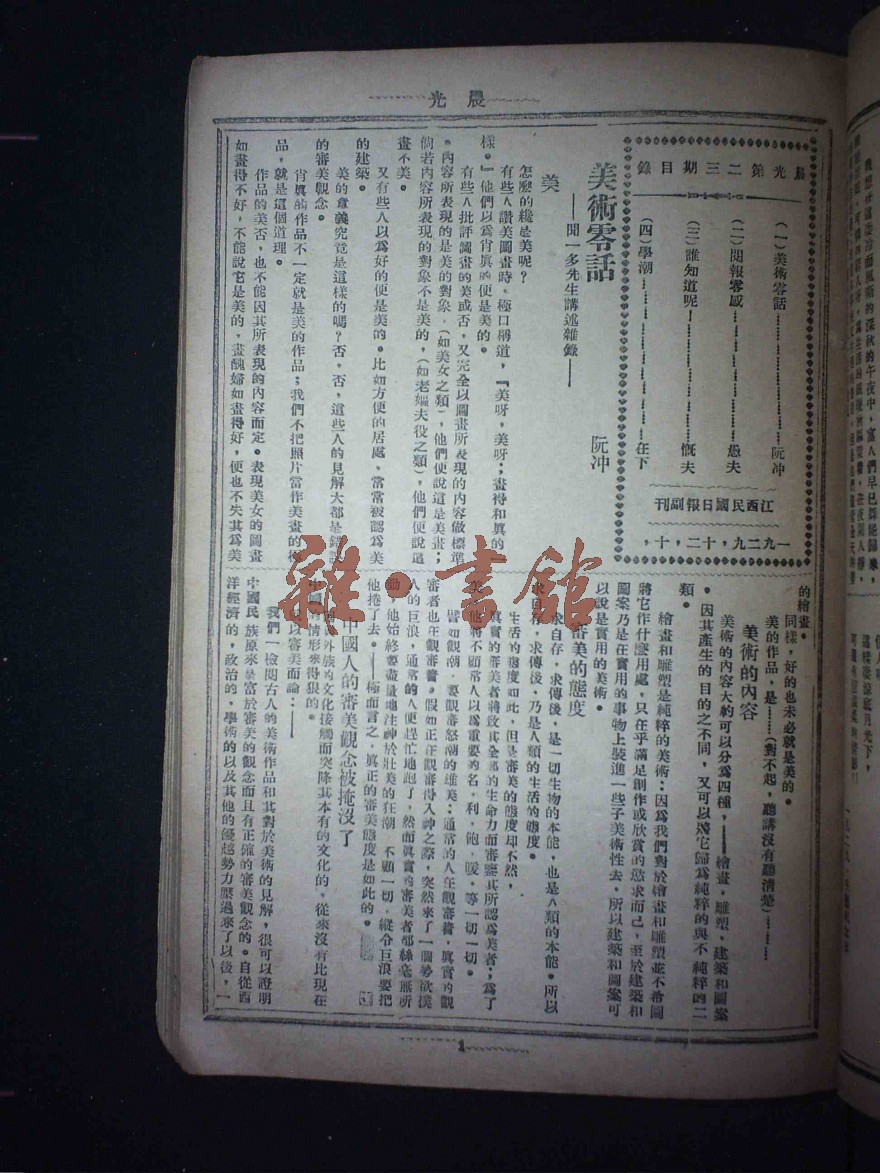 晨光
晨光第二三期目錄
(一)美術零話……阮冲
(二)閱報零感……愚夫
(三)誰知道呢……慨夫
(四)學潮……在下
江西民國日報副刊
一九二九,十二,十,
美術零話
阮冲
——聞一多先生講述雜錄——
美
怎麼的纔是美呢?
有些人讚美圖畫時,極口稱道,『美呀,美呀;畫得和眞的一
樣。』他們以爲肖眞的便是美的。
有些人批評圖畫的美或否,又完全以圖畫所表現的內容做標準
。內容所表現的是美的對象,(如美女之類),他們便說這是美畫;
倘若內容所表現的對象不是美的,(如老嫗夫役之類),他們便說這
畫不美。
又有些人以爲好的便是美的。比如方便的居處,常常被認爲美
的建築。
美的意義究竟是這樣的嗎?否,否,這些人的見解大都是錯誤
的審美觀念。
肖眞的作品不一定就是美的作品;我們不把照片當作美畫的作
品,就是這個道理。
作品的美否,也不能因其所表現的內容而定。表現美女的圖畫
如畫得不好,不能說它是美的,畫醜婦如畫得好,便也不失其爲美
的繪畫。
同樣,好的也未必就是美的。
美的作品,是……(對不起,聽講沒有聽清楚)……
美術的內容
美術的內容大約可以分爲四種,——繪畫,雕塑,建築和圖案
。因其產生的目的之不同,又可以將它歸爲純粹的與不純粹的二
類。
繪畫和雕塑是純粹的美術:因爲我們對於繪畫和雕塑並不希圖
將它作什麼用處,只在乎滿足創作或欣賞的慾求而已,至於建築和
圖案乃是在實用的事物上裝進一些子美術性去,所以建築和圖案可
以說是實用的美術。
審美的態度
求自存,求傳後,是一切生物的本能,也是人類的本能。所以
求自存,求傳後,乃是人類的生活的態度。
生活的態度如此,但是審美的態度却不然,
眞實的審美者將致其全部的生命力而審鑒其所認爲美者;爲了
美,他將不顧常人以爲重要的名,利,飽,暖,等一切一切。
譬如觀潮,要觀審怒潮的雄美;通常的人在觀審着,眞實的觀
審者也在觀審着。假如正在觀審得入神之際,突然來了一個勢欲撲
人的巨浪,通常的人便趕忙地跑了,然而眞實的審美者都絲毫無所
動,他始終要盡量地注神於壯美的狂潮,不顧一切,縱令巨浪要把
他捲了去。——極而言之,眞正的審美態度是如此的。
中國人的審美觀念被掩沒了
外族的文化接觸而突降其本有的文化的,從來沒有比現在
中國的情形來得狠的。
以審美而論:——
我們一檢閱古人的美術作品和其對於美術的見解,很可以證明
中國民族原來是富於審美的觀念而且有正確的審美觀念的。自從西
洋經濟的,政治的,學術的以及其他的優越勢力壓過來了以後,一
1
雜·書館